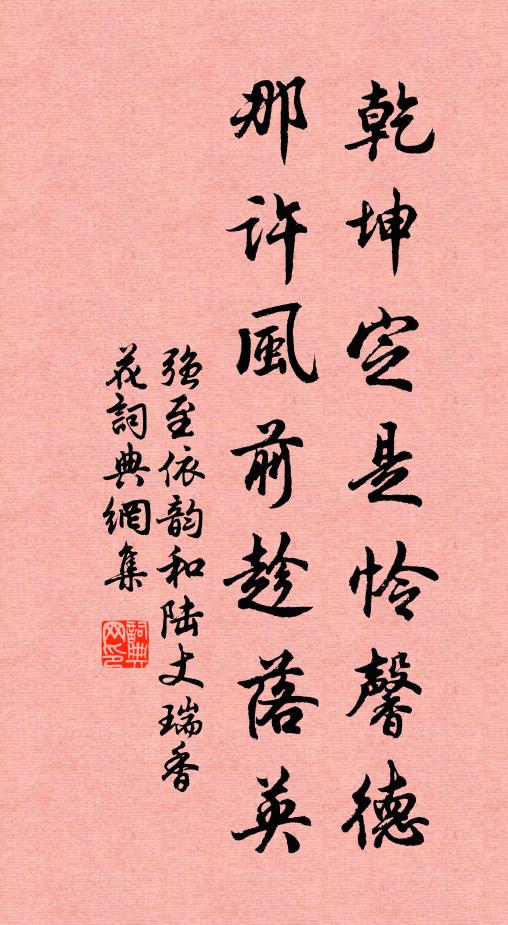 乾坤定是怜馨德
那许風前趁落英
强至依韵和陆丈瑞香
花詞典網集
詞典
网印